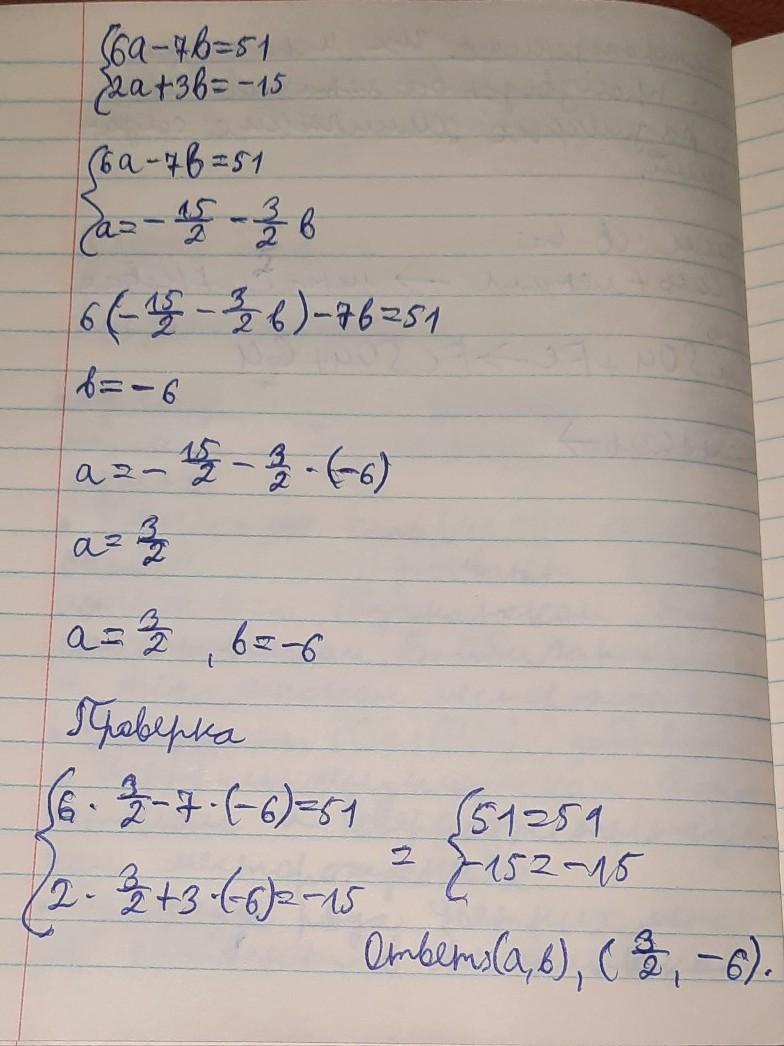 {6a-7b=51
{2a+3b=-15
{6a-7b=51
{a=-15/2-3/2 b
6(-15/2-3/2 b)-7b=51
b=-6
a=-15/2-3/2·(-6)
a=3/2
a=3/2, b=-6
Проверка
{6·3/2-7·(-6)=51 = {51=51
{2·3/2+3·(-6)=-15 {-15=-15
Ответ:(a,b), (3/2, -6).